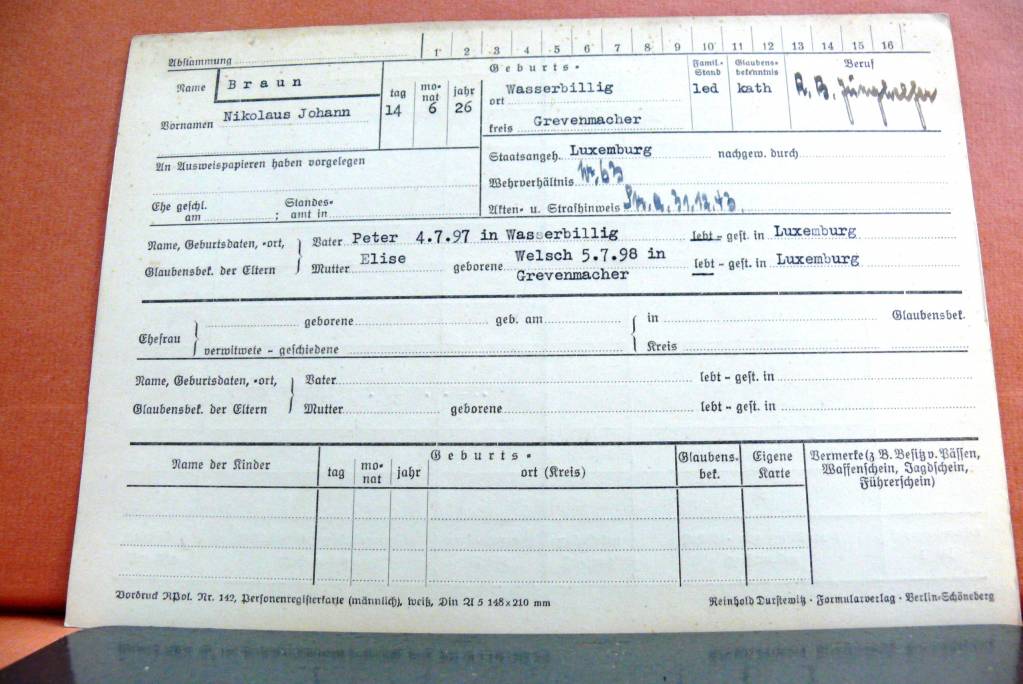 Abstammung 1 2 3 4 5 6 7 8 9 10 11 12 13 14 15 16
Name Braun
Vornamen Nikolaus Johann
Geburts-
tag monat jahr
14 6 26
ort Wasserbillig
kreis Grevenmacher
Famil.-Stand
led
Glaubens-bekenntnis
kath
Beruf
R. B. Junghelfer
An Ausweispapieren haben vorgelegen
Ehe geschl. am ; Standes-amt in
Staatsangeh. Luxemburg nachgew. durch
Wehrverhältnis
Akten- u. Strafhinweis 31.12.43.
Name, Geburtsdaten, -ort, Glaubensbek. der Eltern
Vater Peter 4.7.97 in Wasserbillig lebt - gest. in Luxemburg
Mutter Elise geborene Welsch 5.7.98 in Grevenmacher lebt - gest. in Luxemburg
Ehefrau
geborene geb. am in Glaubensbek.
verwitwete - geschiedene Kreis
Name, Geburtsdaten, -ort, Glaubensbek. der Eltern
Vater lebt - gest. in
Mutter geborene lebt - gest. in
Name der Kinder
Geburts-
tag monat jahr ort (Kreis)
Glaubens-bek.
Eigene Karte
Vermerke (z B. Besitz v. Pässen, Waffenschein, Jagdschein, Führerschein)
Vordruck RPol. Nr. 142, Personenregisterkarte (männlich), weiß, Din A 5 148×210 mm
Reinhold Durstewitz · Formularverlag · Berlin-Schöneberg